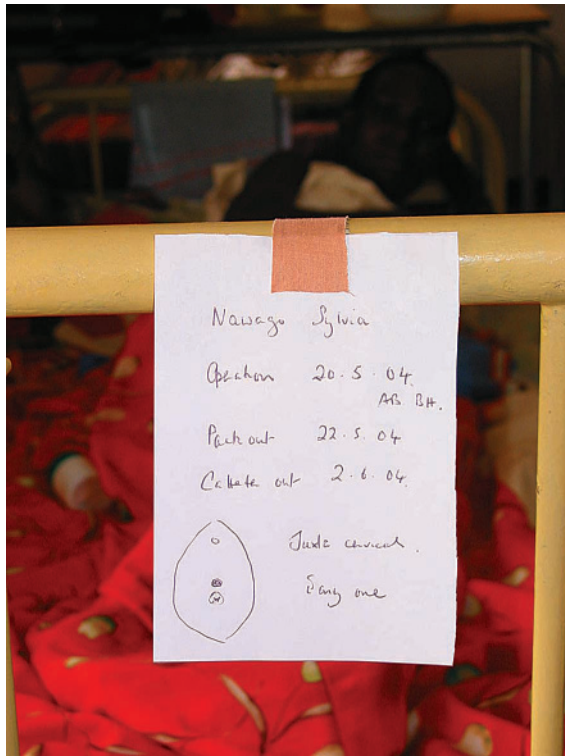 Nawago Sylvia
Operation 20.5.04.
AB BH.
Pack out 22.5.04
Catheter out 2.6.04.
Juxta cervical.
Easy one